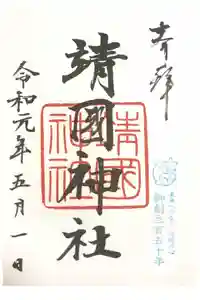 奉拝
靖國神社
靖国神社
御創立百五十年
令和元年五月一日